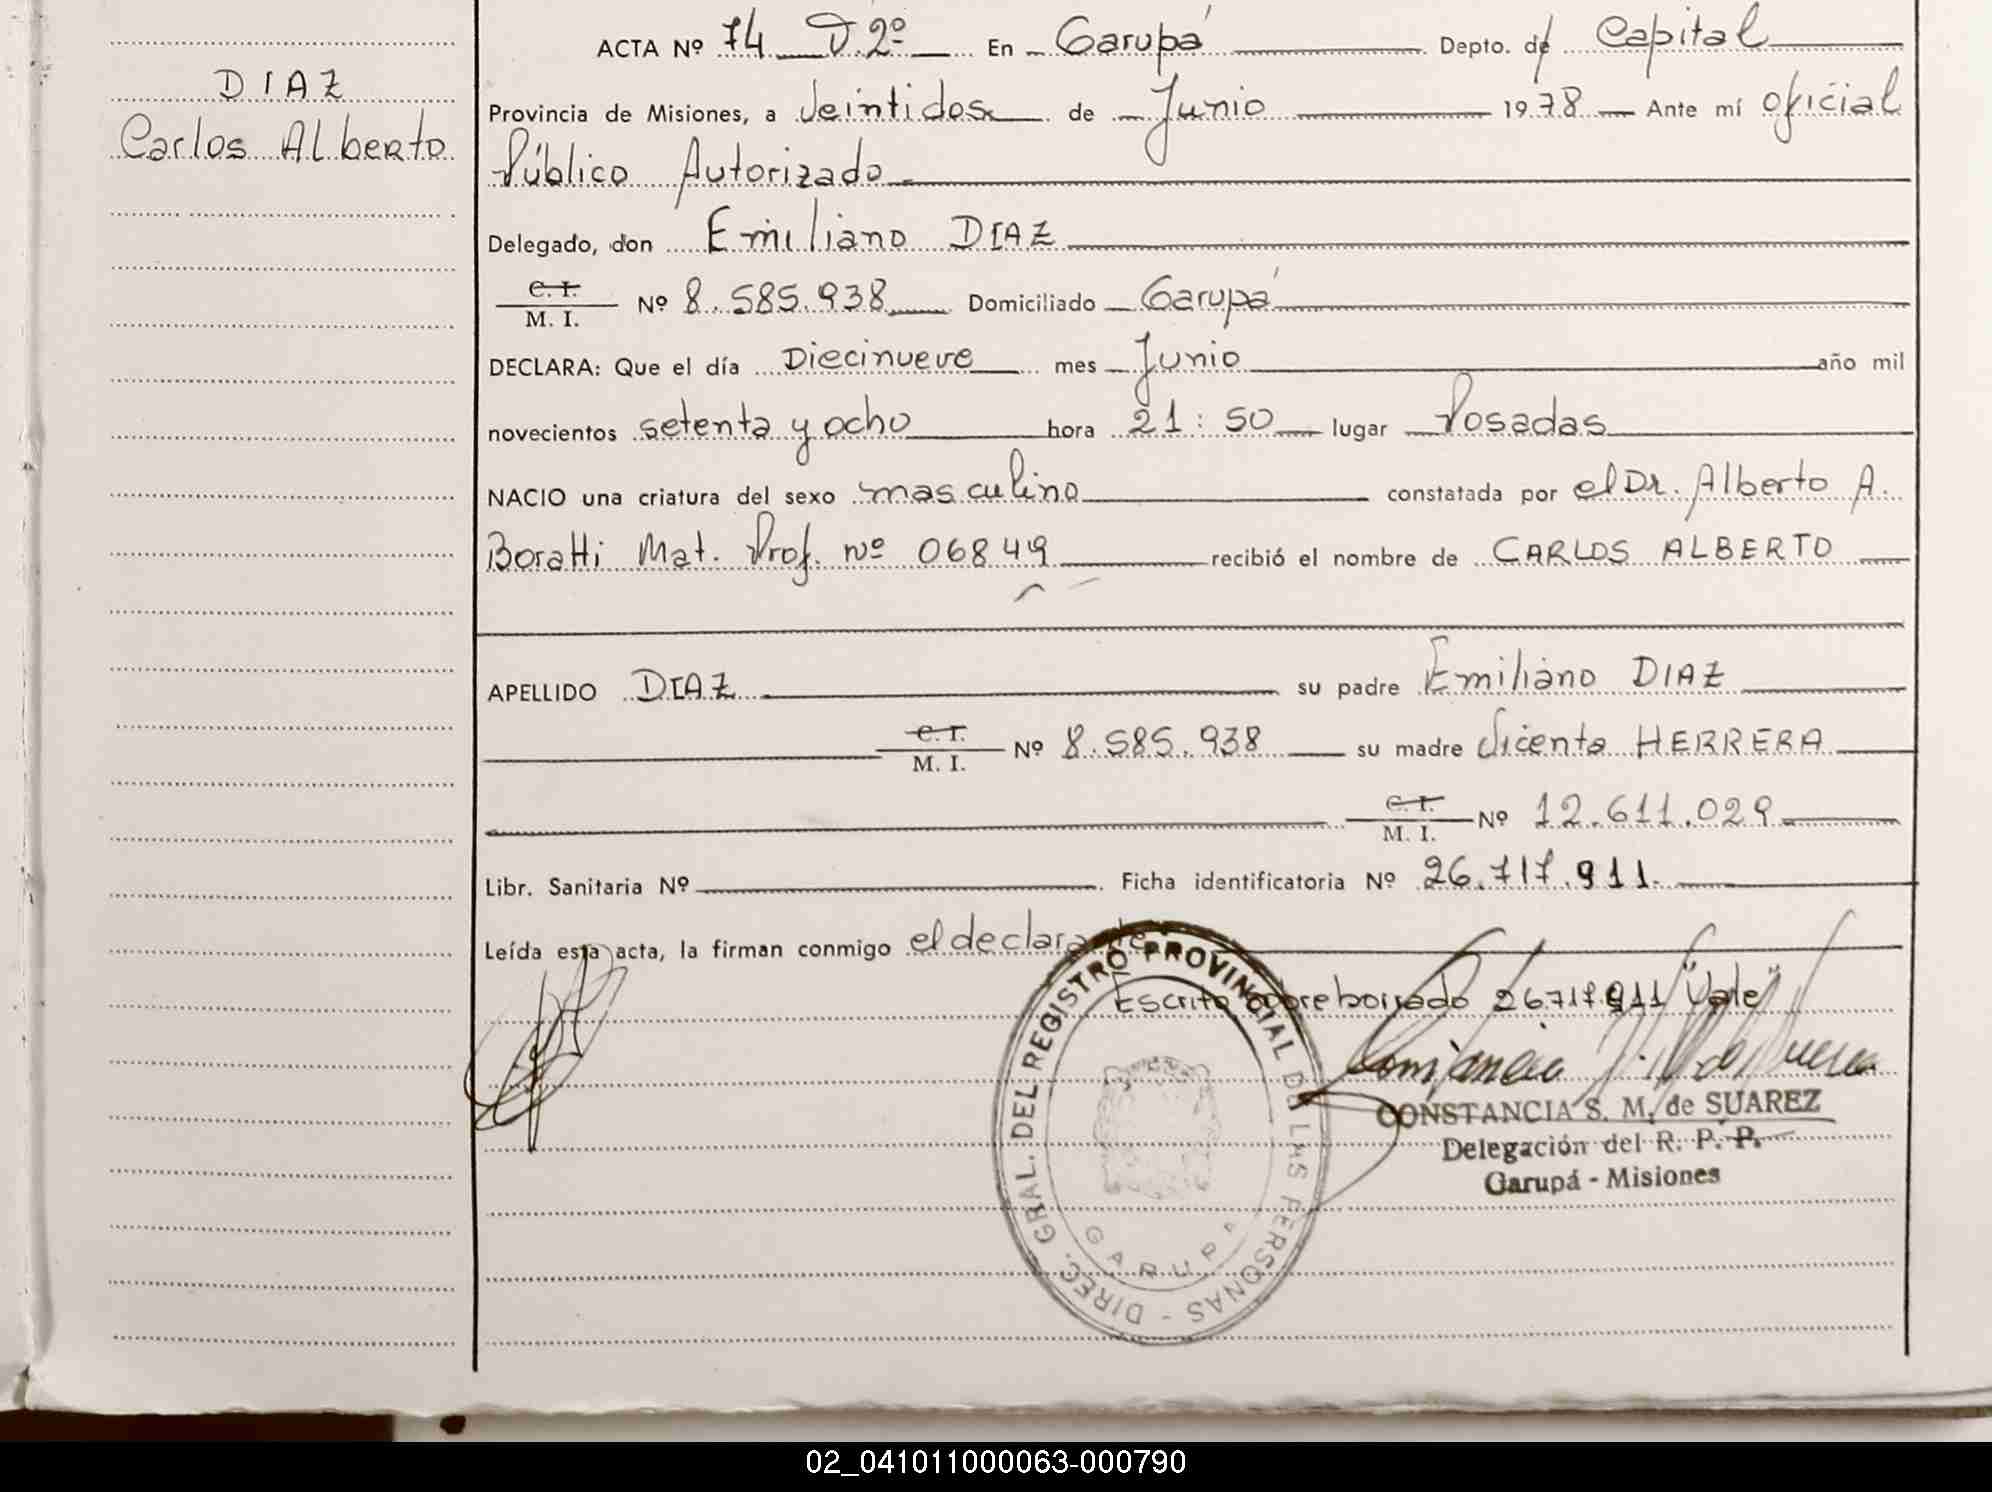 DIAZ
Carlos Alberto
ACTA Nº 74 D.2º En Garupá Depto. de Capital
Provincia de Misiones, a Veintidos de Junio 1978 Ante mí oficial
Público Autorizado
Delegado, don Emiliano DIAZ
C. I.
M. I. Nº 8.585.938 Domiciliado Garupá
DECLARA: Que el día Diecinueve mes Junio año mil
novecientos setenta y ocho hora 21:50 lugar Posadas
NACIO una criatura del sexo masculino constatada por el Dr. Alberto A.
Boratti Mat. Prof. nº 06849 recibió el nombre de CARLOS ALBERTO
APELLIDO DIAZ su padre Emiliano DIAZ
C. I.
M. I. Nº 8.585.938 su madre Vicenta HERRERA
C. I.
M. I. Nº 12.611.029
Libr. Sanitaria Nº Ficha identificatoria Nº 26.717.911.
Leída esta acta, la firman conmigo el declarante
Escrito sobreborrado 26717.911 "Vale"
DIREC. GRAL. DEL REGISTRO PROVINCIAL DE LAS PERSONAS -
GARUPA
CONSTANCIA S. M. de SUAREZ
Delegación del R. P. P.
Garupá - Misiones
02_041011000063-000790